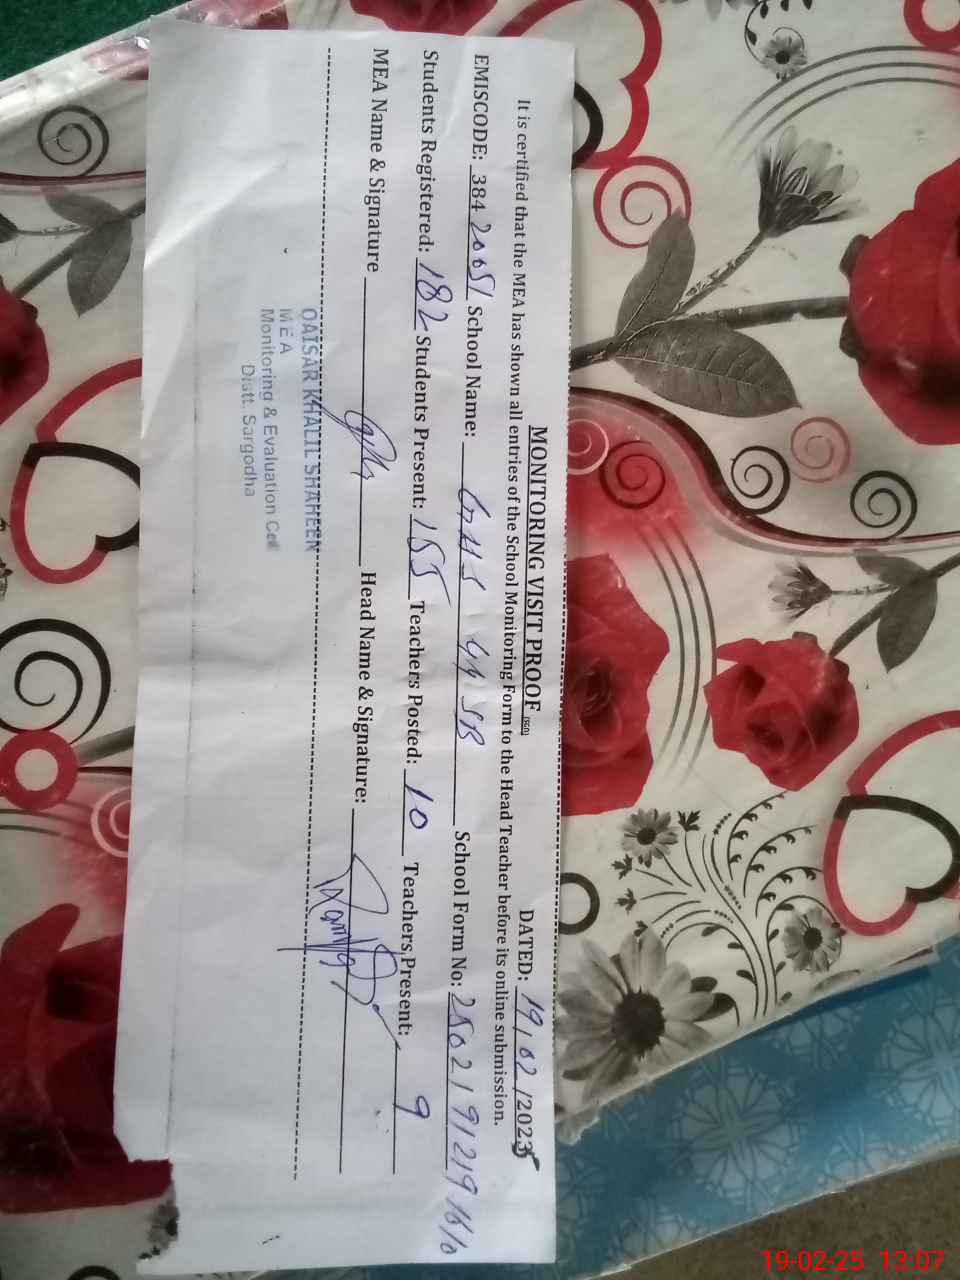 MONITORING VISIT PROOF (SED) DATED: 19/02/2025
It is certified that the MEA has shown all entries of the School Monitoring Form to the Head Teacher before its online submission.
EMISCODE: 38420051 School Name: GHS 49 SB School Form No:
Students Registered: 182 Students Present: 155 Teachers Posted: 10 Teachers Present: 9
MEA Name & Signature Head Name & Signature:
QAISAR KHALIL SHAHEEN
M E A
Monitoring & Evaluation Cell
Distt. Sargodha
19-02-25 13:07